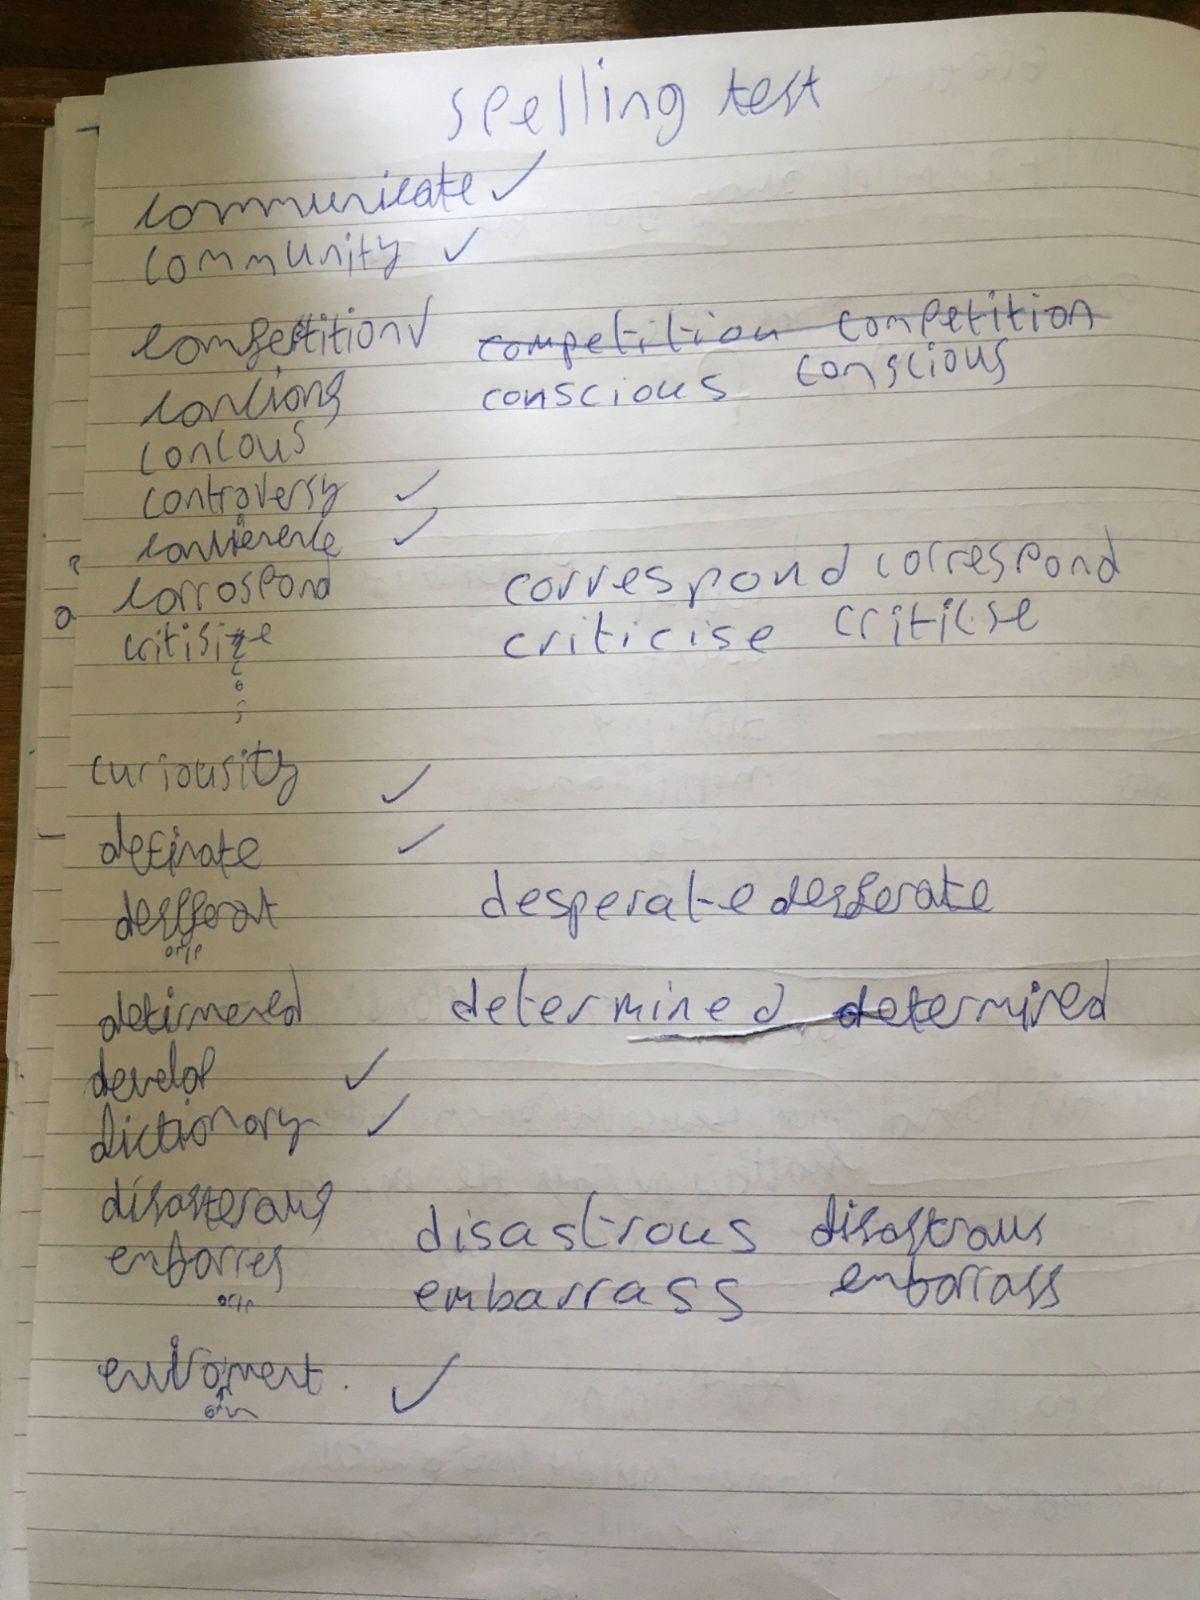 spelling test
communicate ✓
community ✓
competition ✓ competition competition
conscious conscious
concous
controversy ✓
convienence ✓
corrospond correspond correspond
critisize criticise criticise
curiousity ✓
definate ✓
desperat desperate desperate
detirmened determined determined
develop ✓
dictionary ✓
disasterous disastrous disastrous
embarres embarrass embarrass
enviroment. ✓